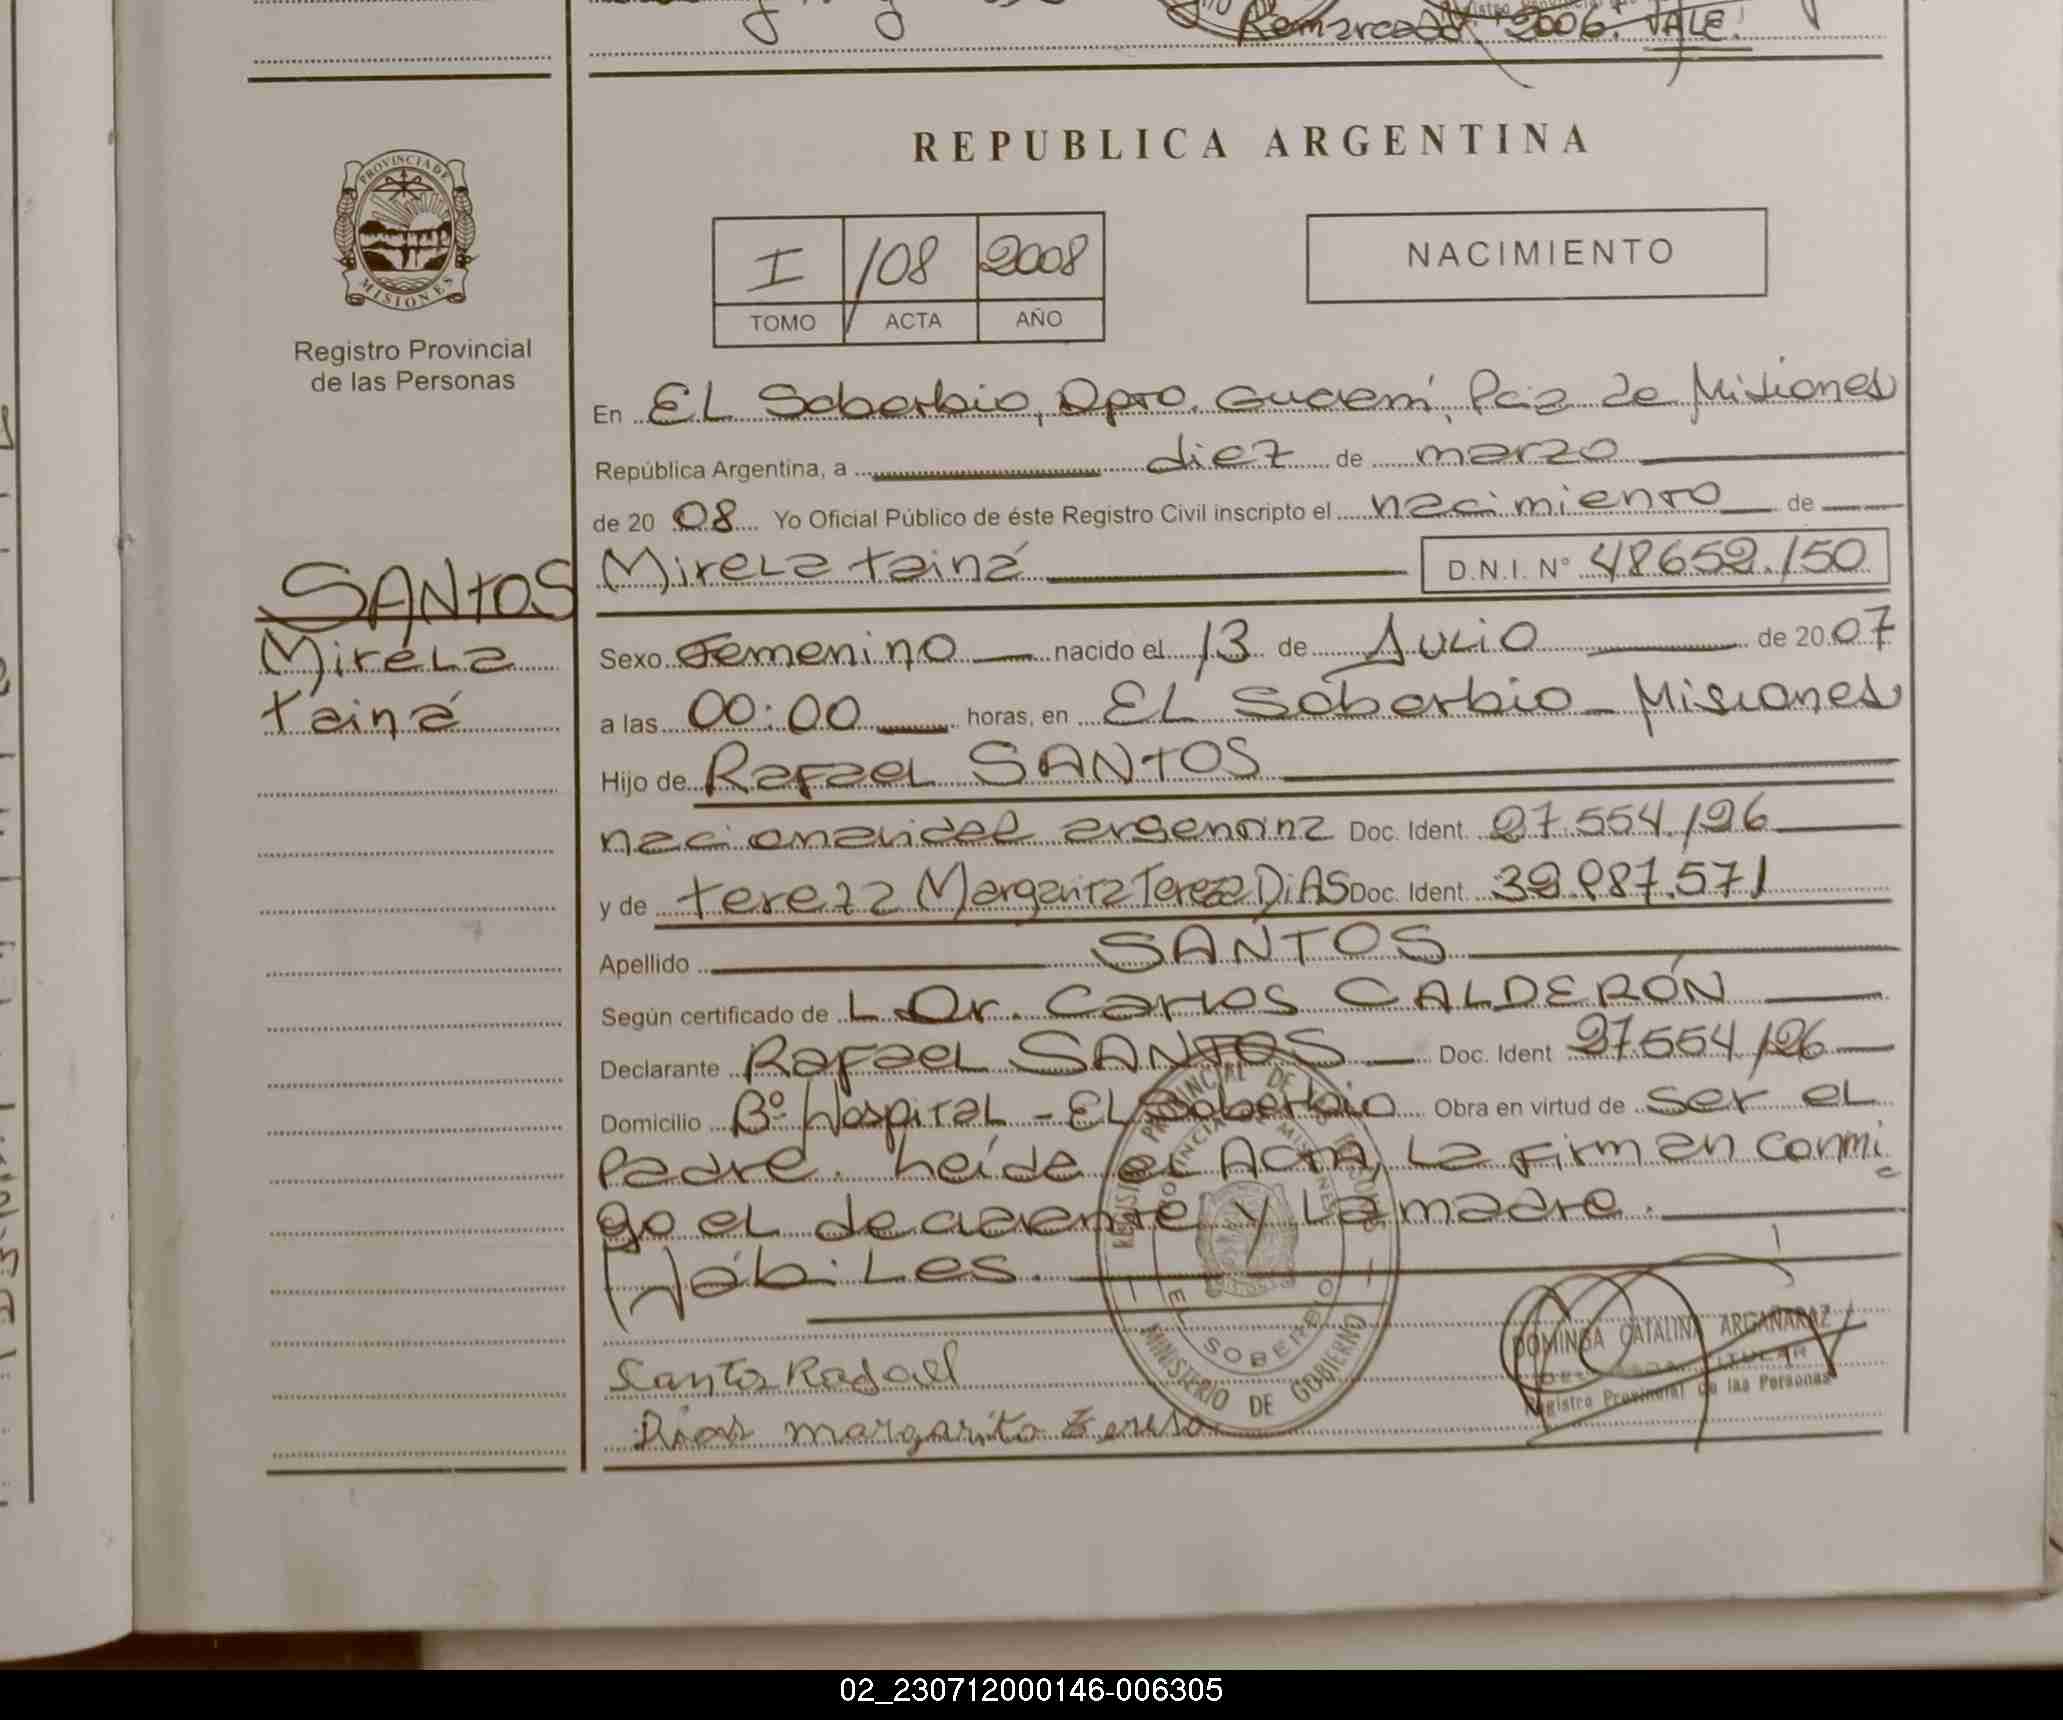 Remarcado. 2006. VALE.
REPUBLICA ARGENTINA
PROVINCIA DE
MISIONES
Registro Provincial
de las Personas
I 108 2008
TOMO ACTA AÑO
NACIMIENTO
En EL Soberbio, Dpto. Guaraní, Pcia de Misiones
República Argentina, a diez de marzo
de 2008 Yo Oficial Público de éste Registro Civil inscripto el nacimiento de
SANTOS
Mirela
Tainá
Mirela Tainá D.N.I. Nº 48652.150
Sexo Femenino nacido el 13 de Julio de 2007
a las 00:00 horas, en EL Soberbio - Misiones
Hijo de Rafael SANTOS
nacionalidad argentina Doc. Ident. 27.554.126
y de Tereza Margarita Tereza DiAS Doc. Ident. 39.987.571
Apellido SANTOS
Según certificado de L Dr. Carlos CALDERÓN
Declarante Rafael SANTOS Doc. Ident 27.554.126
Domicilio Bº Hospital - EL Soberbio Obra en virtud de ser el
Padre. Leída el Acta, La Firman conmi
go el declarante y La madre.
Hábiles.
REGISTRO PROVINCIAL DE LAS PERSONAS
PROVINCIA DE MISIONES
EL SOBERBIO
MINISTERIO DE GOBIERNO
DOMINGA CATALINA ARGAÑARAZ
TITULAR
Registro Provincial de las Personas
Santos Rafael
Dias margarita Teresa
02_230712000146-006305